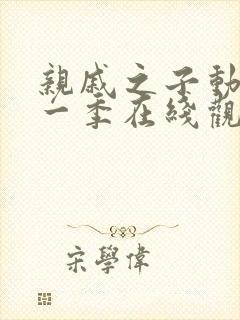 親戚之子動
一季在綫觀
宋學偉